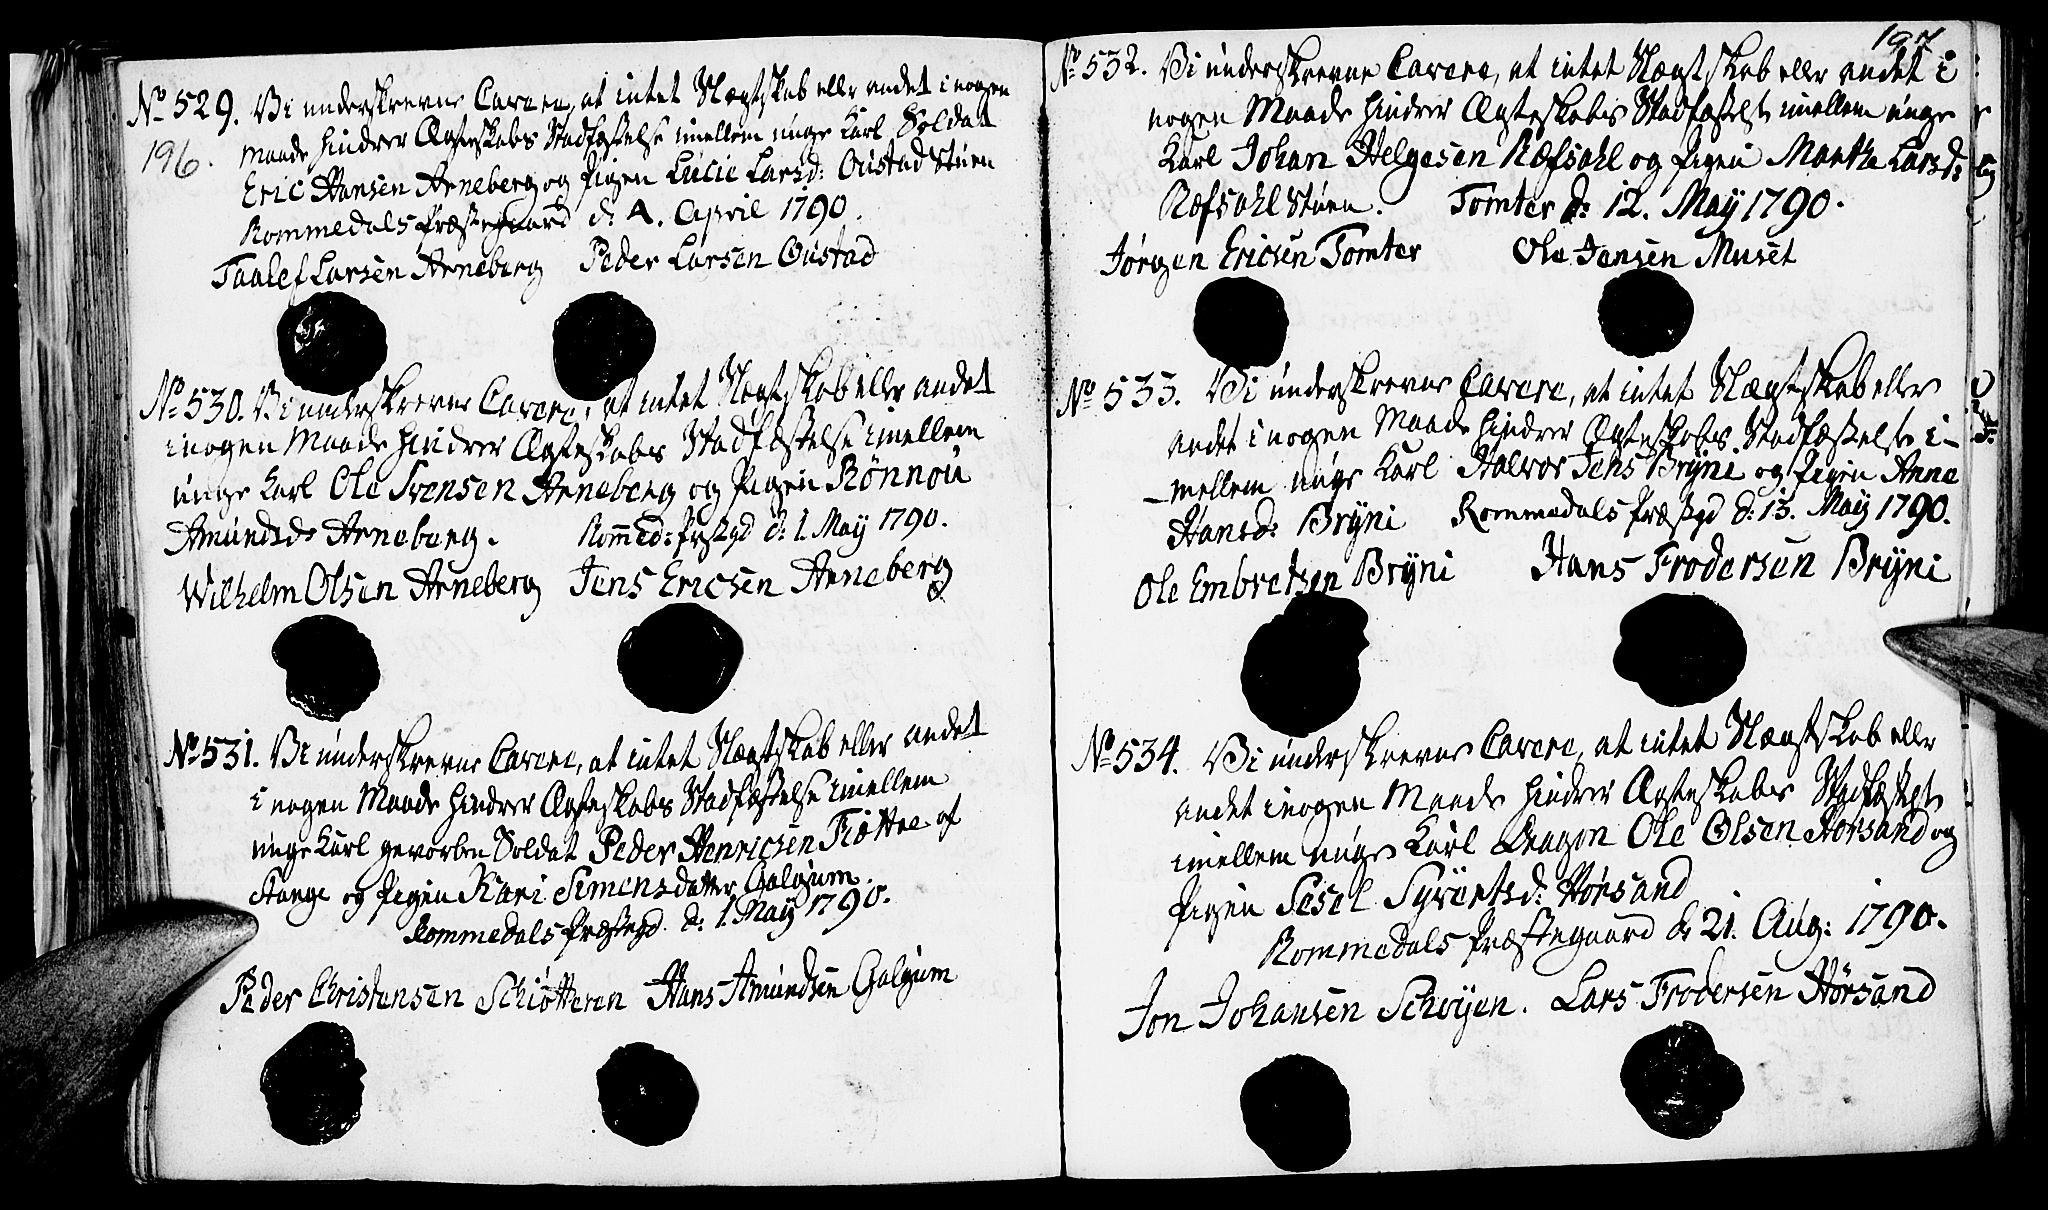 No 529. Vi underskrevne Cavere, at intet Slægtskab eller andet i nogen
196.
Maade hindrer Ægteskabs Stadfæstelse imellem unge Karl Soldat
Eric Hansen Arneberg og Pigen Lucie Larsd: Oustad Stuen
Rommedals Præstegaard d. 4. April 1790.
Taalef Larsen Arneberg Peder Larsen Oustad
No 530. Vi underskrevne Cavere, at intet Slægtskab eller andet
i nogen Maade hindrer Ægteskabs Stadfæstelse imellem
unge Karl Ole Svensen Arneberg og Pigen Rönnou
Amundsd: Arneberg. Rommed: Præstgd d: 1. May 1790.
Wilhelm Olsen Arneberg Jens Ericsen Arneberg
No 531. Vi underskrevne Cavere, at intet Slægtskab eller andet
i nogen Maade hindrer Ægteskabs Stadfæstelse imellem
unge Karl gevorben Soldat Peder Henricsen Fiøttne af
Stange og Pigen Kari Simensdatter Galgum.
Rommedals Præstegd. d: 1. May 1790.
Peder Christensen Schiøtteren Hans Amundsen Galgum
197
No 532. Vi underskrevne Cavere, at intet Slægtskab eller andet i
nogen Maade hindrer Ægteskabs Stadfæstelse imellem unge
Karl Johan Helgesen Ræfsahl og Pigen Marthe Larsd:
Ræfsahl Stuen. Tomter d: 12. May 1790.
Jørgen Ericsen Tomter Ole Jensen Muset
No 533. Vi underskrevne Cavere, at intet Slægtskab eller
andet i nogen Maade hindrer Ægteskabs Stadfæstelse i-
-mellem unge Karl Halvor Jens Bryni og Pigen Anne
Hansd: Bryni Rommedals Præstgd d: 13. May 1790.
Ole Embretsen Bryni Hans Frodersen Bryni
No 534. Vi underskrevne Cavere, at intet Slægtskab eller
andet i nogen Maade hindrer Ægteskabs Stadfæstelse
imellem unge Karl Dragon Ole Olsen Hørsand og
Pigen Sesel Syvertsd: Hørsand
Rommedals Præstegaard d: 21. Aug: 1790.
Jon Johansen Schøyen. Lars Frodersen Hørsand